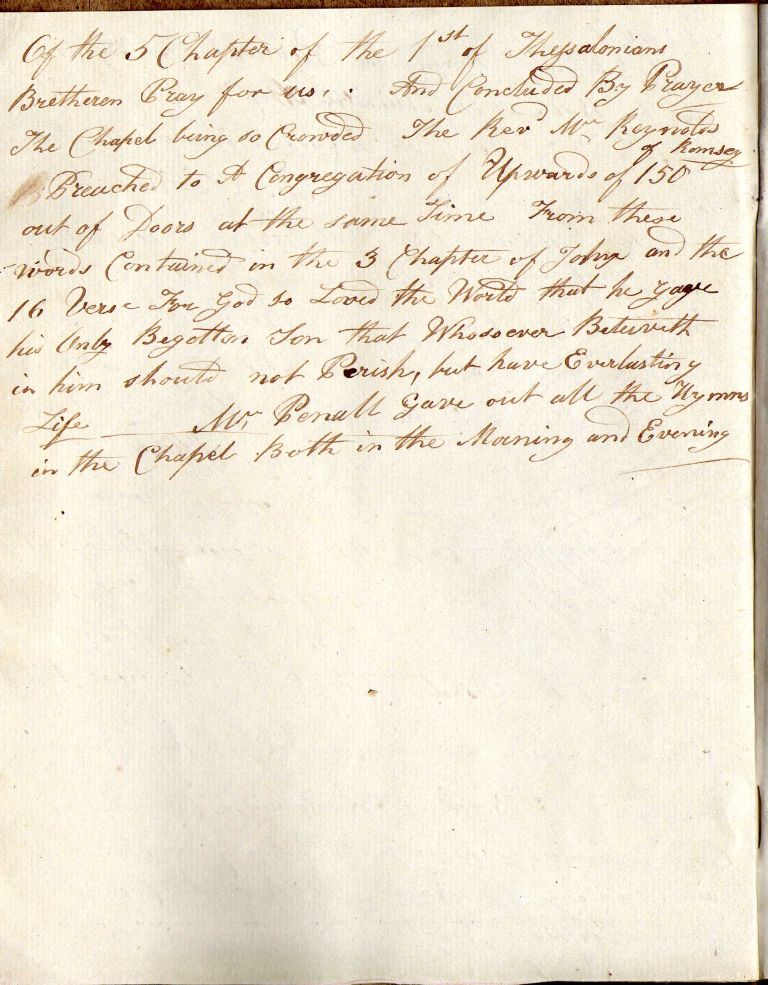 Of the 5 Chapter of the 1st of Thessalonians
Bretheren Pray for us. And Concluded By Prayer
The Chapel being so Crowded The Revd Mr Reynolds
of Romsey
Preached to A Congregation of Upwards of 150
out of Doors at the same Time From these
words Contained in the 3 Chapter of John and the
16 Verse For God so Loved the World that he gave
his Only Begotton Son that Whosoever Beleiveth
in him should not Perish, but have Everlasting
Life Mr Penall Gave out all the Hymns
in the Chapel Both in the Morning and Evening